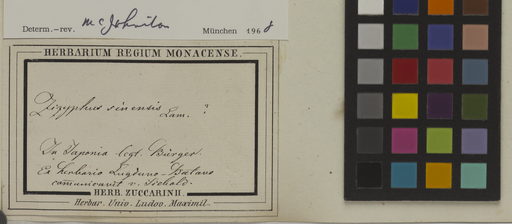 Determ.—rev. McJohnston München 1968
HERBARIUM REGIUM MONACENSE.
Zizyphus sinensis Lam. ?
In Japonia legt. Bürger.
Ex herbario Lugduno-Batavo
communicavit v. Siebold.
HERB. ZUCCARINII.
Herbar. Univ. Ludov. Maximil.